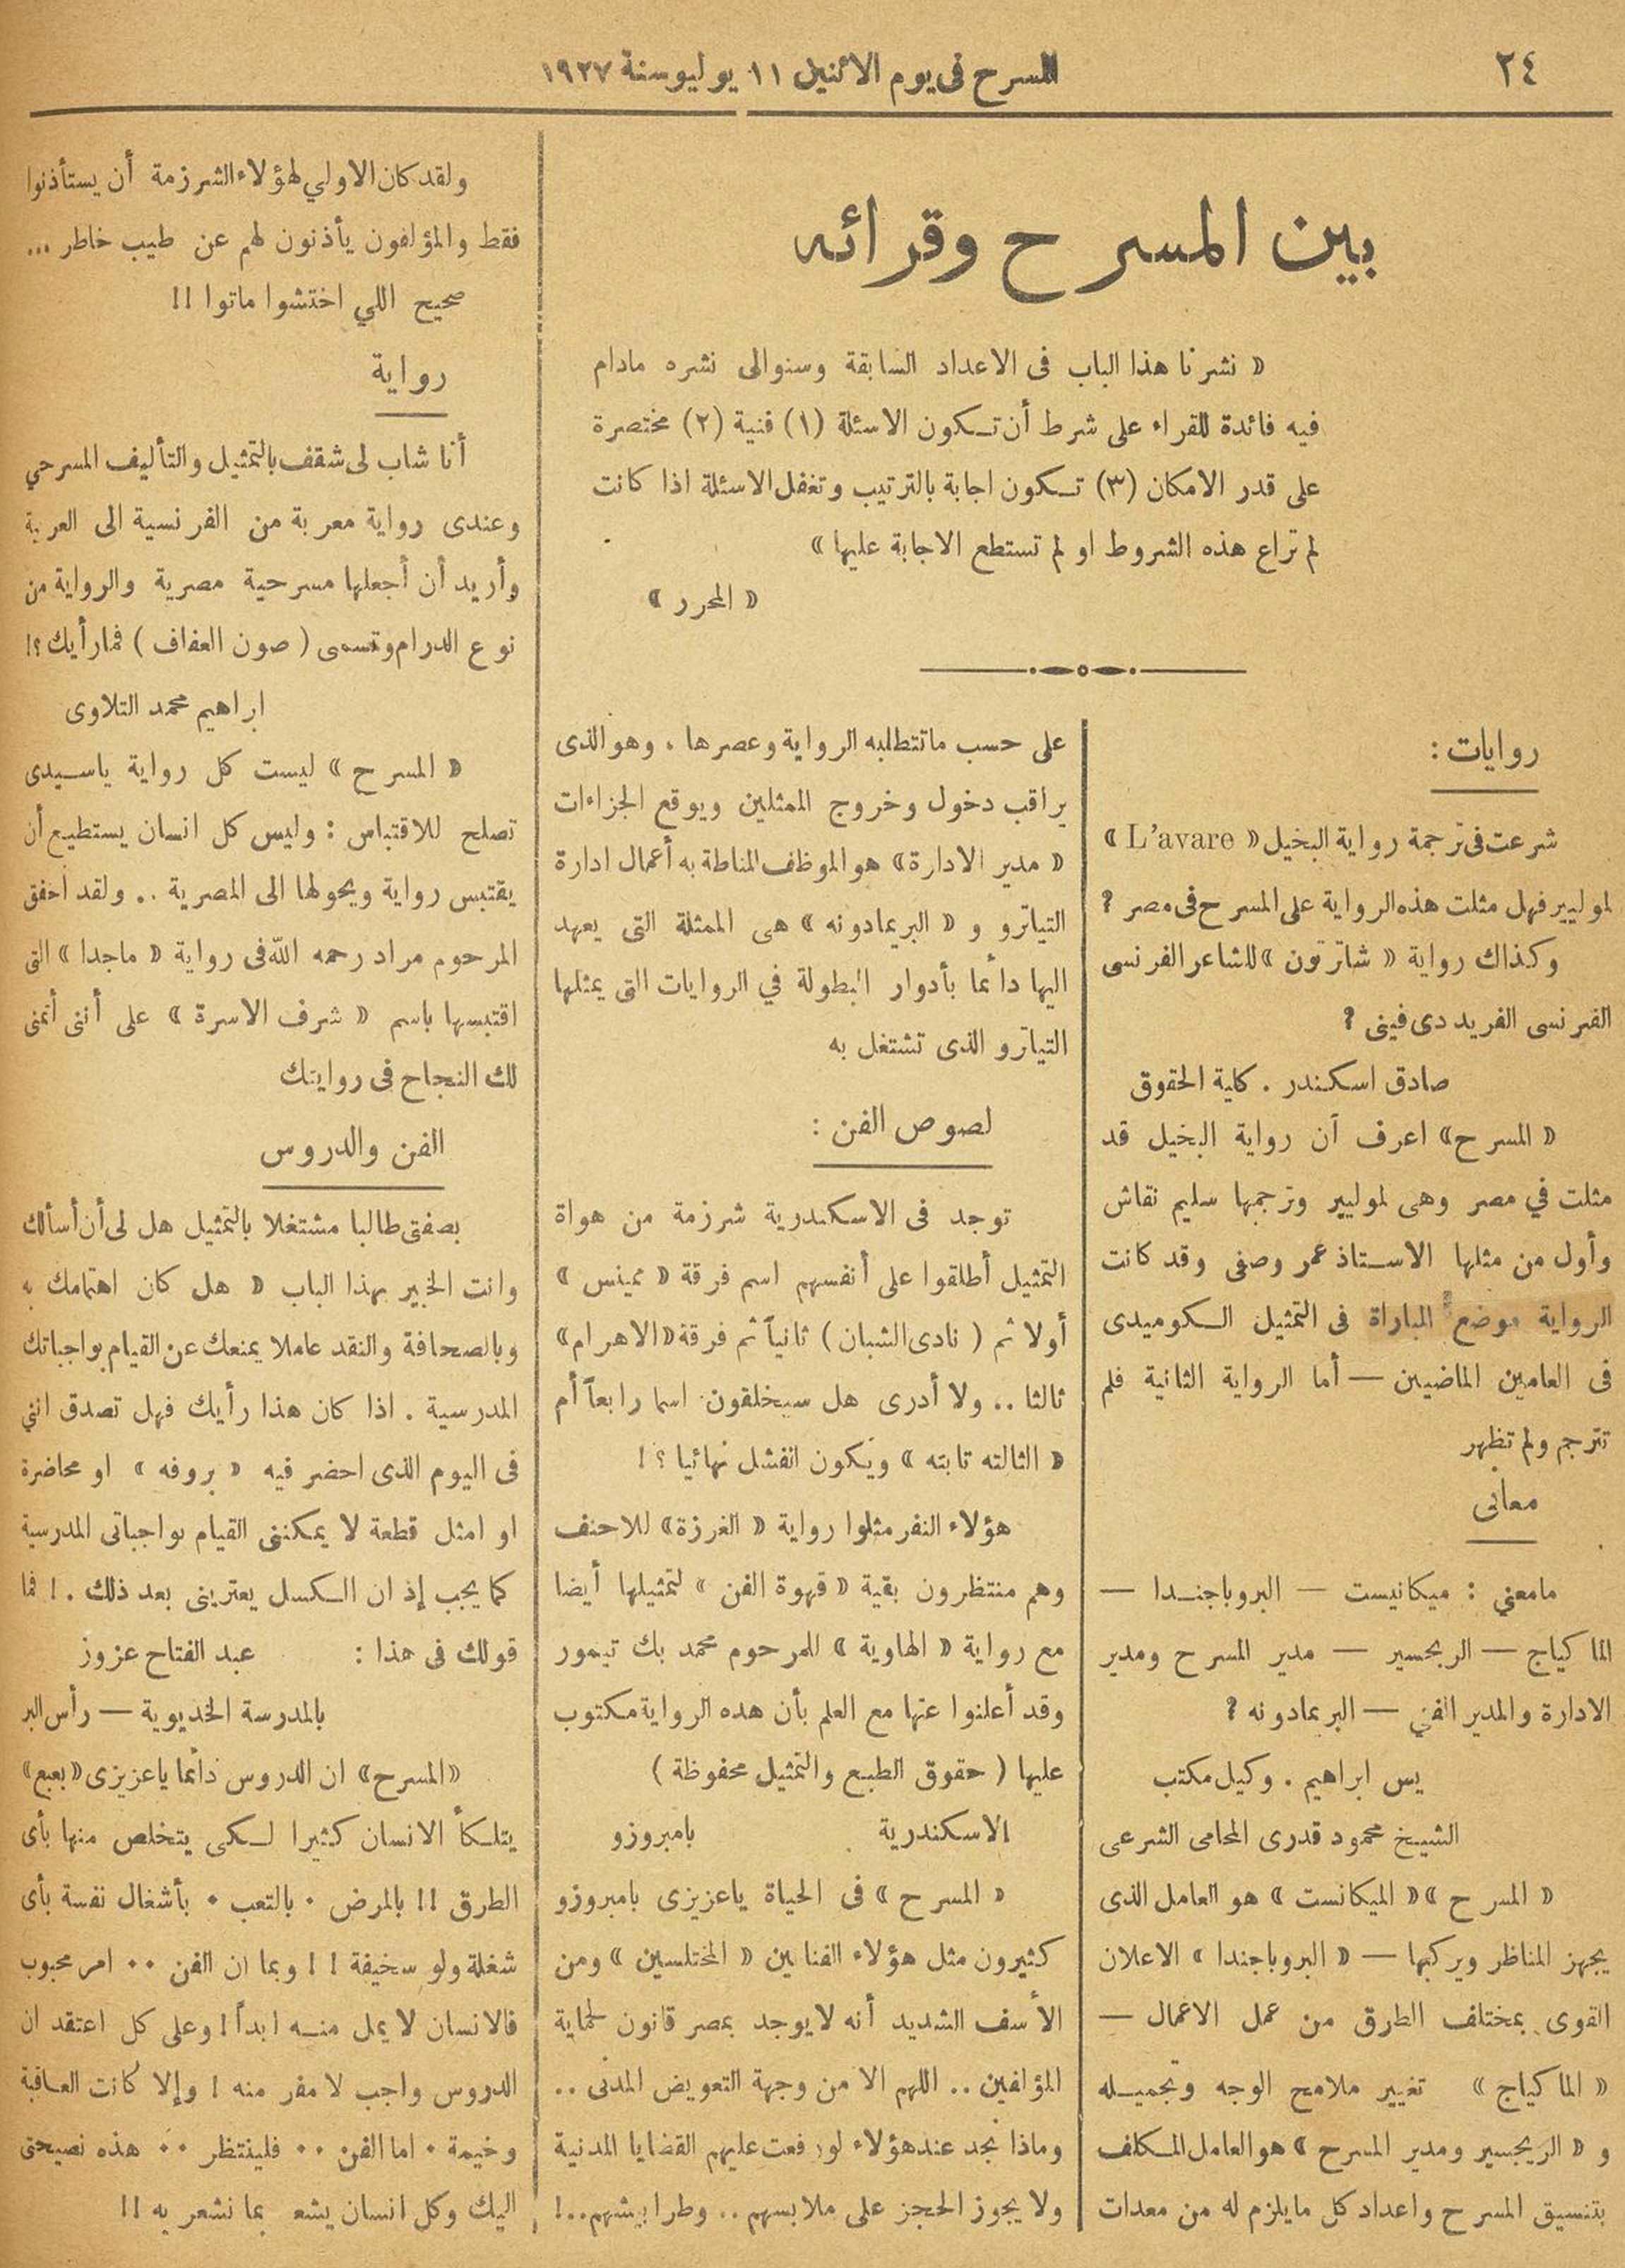 ٢٤
المسرح فى يوم الاثنين ١١ يوليو سنة ١٩٢٧
بين المسرح وقرائه
« نشرنا هذا الباب فى الاعداد السابقة وسنوالى نشره مادام
فيه فائدة للقراء على شرط أن تكون الاسئلة (١) فنية (٢) مختصرة
على قدر الامكان (٣) تكون اجابة بالترتيب وتغفل الاسئلة اذا كانت
لم تراع هذه الشروط او لم تستطع الاجابة عليها »
« المحرر »
روايات :
شرعت فى ترجمة رواية البخيل « L'avare »
لموليير فهل مثلت هذه الرواية على المسرح فى مصر ؟
وكذاك رواية « شاترتون » للشاعر الفرنسى
الفرنسى الفريد دى فينى ؟
صادق اسكندر . كلية الحقوق
« المسرح » اعرف أن رواية البخيل قد
مثلت في مصر وهى لموليير وترجمها سليم نقاش
وأول من مثلها الاستاذ عمر وصفى وقد كانت
الرواية موضع المباراة فى التمثيل الكوميدى
فى العامين الماضيين — أما الرواية الثانية فلم
تترجم ولم تظهر
معانى
مامعني : ميكانيست — البروباجندا —
الماكياج — الريجسير — مدير المسرح ومدير
الادارة والمدير الفني — البريمادونه ؟
يس ابراهيم . وكيل مكتب
الشيخ محمود قدرى المحامى الشرعى
« المسرح » « الميكانست » هو العامل الذى
يجهز المناظر ويركبها — « البروباجندا » الاعلان
القوى بمختلف الطرق من عمل الاعمال —
« الماكياج » تغيير ملامح الوجه وتجميله
و « الريجسير ومدير المسرح » هو العامل المكلف
بتنسيق المسرح واعداد كل مايلزم له من معدات
على حسب ماتتطلبه الرواية وعصرها . وهو الذى
يراقب دخول وخروج الممثلين ويوقع الجزاءات
« مدير الادارة » هو الموظف المناطة به أعمال ادارة
التياترو و « البريمادونه » هى الممثلة التى يعهد
اليها دائما بأدوار البطولة في الروايات التى يمثلها
التياترو الذى تشتغل به
لصوص الفن :
توجد فى الاسكندرية شرزمة من هواة
التمثيل أطلقوا على أنفسهم اسم فرقة « ممينس »
أولا ثم ( نادى الشبان ) ثانياً ثم فرقة « الاهرام »
ثالثا .. ولا أدرى هل سيخلقون اسما رابعاً أم
« الثالته تابته » ويكون الفشل نهائيا ؟ !
هؤلاء النفر مثلوا رواية « الغرزة » للاحنف
وهم منتظرون بقية « قهوة الفن » لتمثيلها أيضا
مع رواية « الهاوية » للمرحوم محمد بك تيمور
وقد أعلنوا عنها مع العلم بأن هده الرواية مكتوب
عليها ( حقوق الطبع والتمثيل محفوظة )
الاسكندرية بامبروزو
« المسرح » فى الحياة ياعزيزى بامبروزو
كثيرون مثل هؤلاء الفنانين « المختلسين » ومن
الأسف الشديد أنه لا يوجد بمصر قانون لحماية
المؤلفين .. اللهم الا من وجهة التعويض المدنى ..
وماذا نجد عند هؤلاء لو رفعت عليهم القضايا المدنية
ولا يجوز الحجز على ملابسهم .. وطرابيشهم ..!
ولقد كان الاولي لهؤلاء الشرزمة أن يستأذنوا
فقط والمؤلفون يأذنون لهم عن طيب خاطر ...
صحيح اللي اختشوا ماتوا !!
رواية
أنا شاب لى شقف بالتمثيل والتأليف المسرحي
وعندى رواية معربة من الفرنسية الى العربة
وأريد أن أجعلها مسرحية مصرية والرواية من
نوع الدرام وتسمى ( صون العفاف ) فمارأيك ؟!
ابراهيم محمد التلاوى
« المسرح » ليست كل رواية ياسيدى
تصلح للاقتباس : وليس كل انسان يستطيع أن
يقتبس رواية ويحولها الى المصرية .. ولقد أخفق
المرحوم مراد رحمه الله فى رواية « ماجدا » التى
اقتبسها باسم « شرف الاسرة » على أننى أتمنى
لك النجاح فى روايتك
الفن والدروس
بصفتى طالبا مشتغلا بالتمثيل هل لى أن أسألك
وانت الخبير بهذا الباب « هل كان اهتمامك به
وبالصحافة والنقد عاملا يمنعك عن القيام بواجباتك
المدرسية . اذا كان هذا رأيك فهل تصدق انني
فى اليوم الذى احضر فيه « بروفه » او محاضرة
او امثل قطعة لا يمكننى القيام بواجباتى المدرسية
كما يجب إذ ان الكسل يعترينى بعد ذلك . ! فما
قولك فى هذا : عبد الفتاح عزوز
بالمدرسة الخديوية — رأس البر
« المسرح » ان الدروس دائما ياعزيزى « بعبع »
يتلكأ الانسان كثيرا لكى يتخلص منها بأى
الطرق !! بالمرض . بالتعب . بأشغال نفسة بأى
شغلة ولو سخيفة ! ! وبما ان الفن .. امر محبوب
فالانسان لا يمل منه ابداً ! وعلى كل اعتقد ان
الدروس واجب لا مفر منه ! وإلا كانت العاقبة
وخيمة . اما الفن .. فلينتظر .. هذه نصيحتى
اليك وكل انسان يشعر بما نشعر به !!